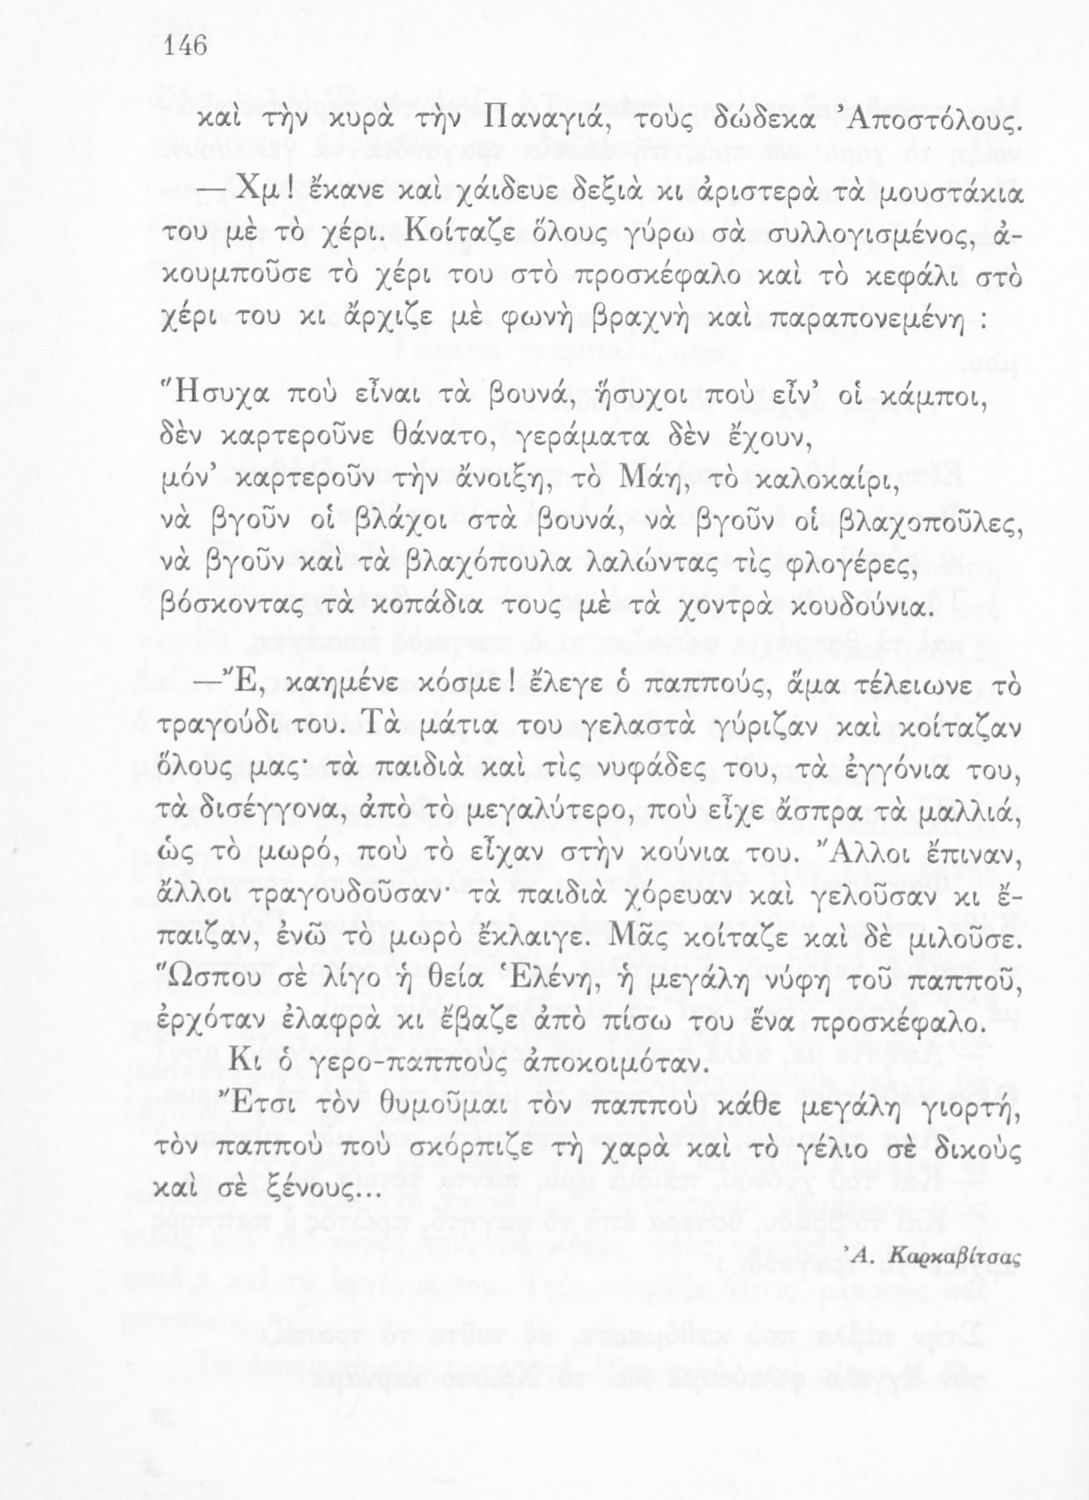 146
καὶ τὴν κυρὰ τὴν Παναγιά, τοὺς δώδεκα Ἀποστόλους.
— Χμ! ἔκανε καὶ χάιδευε δεξιὰ κι ἀριστερὰ τὰ μουστάκια
του μὲ τὸ χέρι. Κοίταζε ὅλους γύρω σὰ συλλογισμένος, ἀ-
κουμποῦσε τὸ χέρι του στὸ προσκέφαλο καὶ τὸ κεφάλι στὸ
χέρι του κι ἄρχιζε μὲ φωνὴ βραχνὴ καὶ παραπονεμένη :
Ἥσυχα ποὺ εἶναι τὰ βουνά, ἥσυχοι ποὺ εἶν’ οἱ κάμποι,
δὲν καρτεροῦνε θάνατο, γεράματα δὲν ἔχουν,
μόν’ καρτεροῦν τὴν ἄνοιξη, τὸ Μάη, τὸ καλοκαίρι,
νὰ βγοῦν οἱ βλάχοι στὰ βουνά, νὰ βγοῦν οἱ βλαχοποῦλες,
νὰ βγοῦν καὶ τὰ βλαχόπουλα λαλώντας τὶς φλογέρες,
βόσκοντας τὰ κοπάδια τους μὲ τὰ χοντρὰ κουδούνια.
—Ἔ, καημένε κόσμε! ἔλεγε ὁ παππούς, ἅμα τέλειωνε τὸ
τραγούδι του. Τὰ μάτια του γελαστὰ γύριζαν καὶ κοίταζαν
ὅλους μας· τὰ παιδιὰ καὶ τὶς νυφάδες του, τὰ ἐγγόνια του,
τὰ δισέγγονα, ἀπὸ τὸ μεγαλύτερο, ποὺ εἶχε ἄσπρα τὰ μαλλιά,
ὡς τὸ μωρό, ποὺ τὸ εἶχαν στὴν κούνια του. Ἄλλοι ἔπιναν,
ἄλλοι τραγουδοῦσαν· τὰ παιδιὰ χόρευαν καὶ γελοῦσαν κι ἔ-
παιζαν, ἐνῶ τὸ μωρὸ ἔκλαιγε. Μᾶς κοίταζε καὶ δὲ μιλοῦσε.
Ὥσπου σὲ λίγο ἡ θεία Ἑλένη, ἡ μεγάλη νύφη τοῦ παπποῦ,
ἐρχόταν ἐλαφρὰ κι ἔβαζε ἀπὸ πίσω του ἕνα προσκέφαλο.
Κι ὁ γερο-παπποὺς ἀποκοιμόταν.
Ἔτσι τὸν θυμοῦμαι τὸν παπποὺ κάθε μεγάλη γιορτή,
τὸν παπποὺ ποὺ σκόρπιζε τὴ χαρὰ καὶ τὸ γέλιο σὲ δικοὺς
καὶ σὲ ξένους...
Ἀ. Καρκαβίτσας